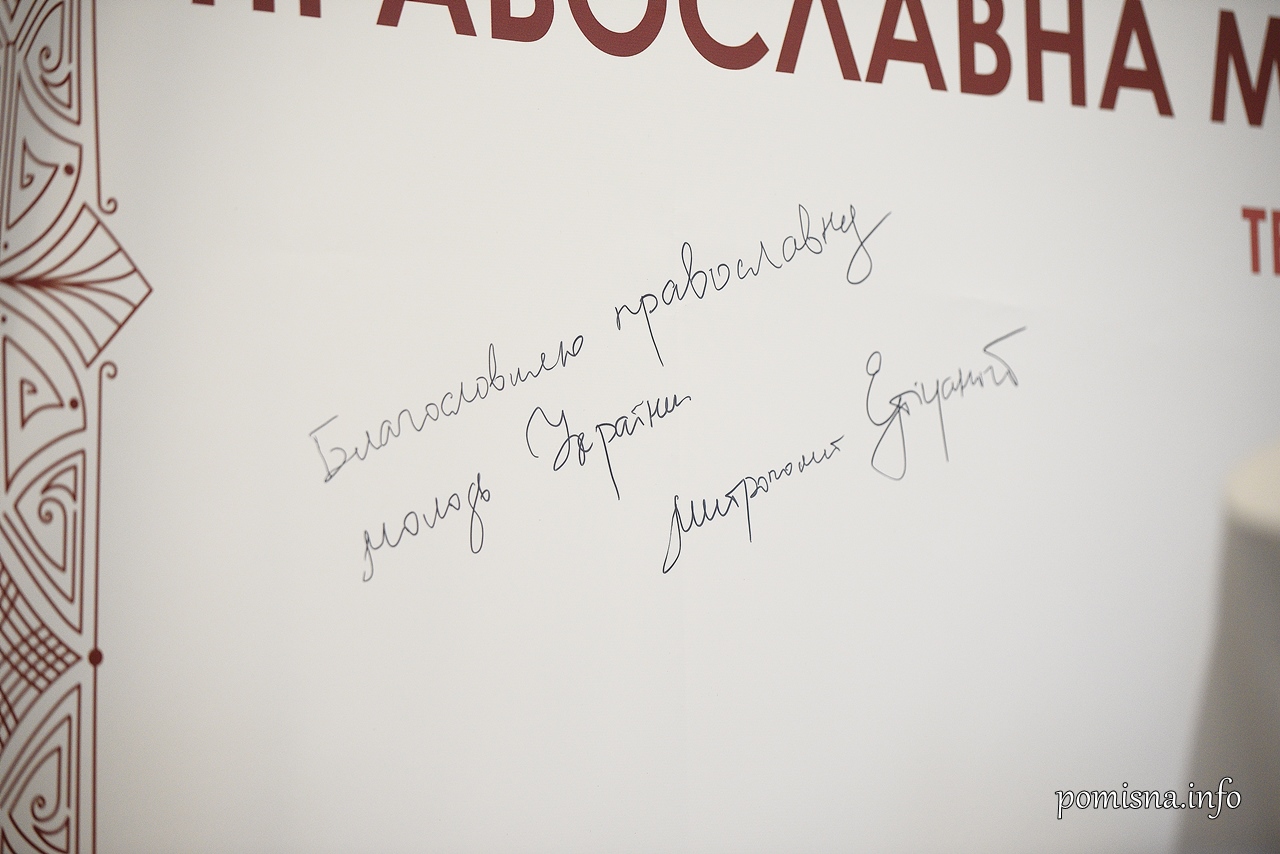 ПРАВОСЛАВНА М
ТЕ
Благословляю православну
молодь України
Митрополит Епіфаній
pomisna.info